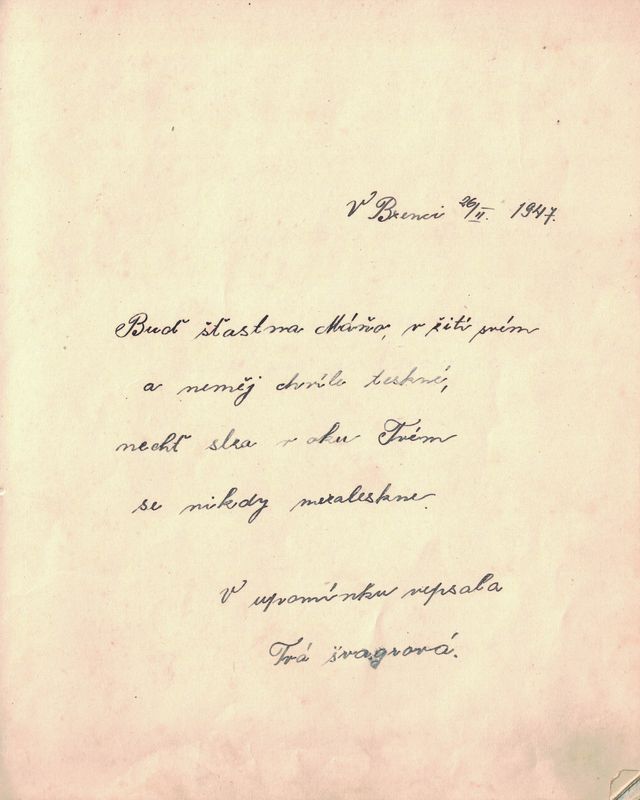 V Brenci 26/II. 1947.
Buď šťastna Máňo, v žití svém
a neměj chvíle teskné,
nechť slza v oku Tvém
se nikdy nezaleskne.
V upomínku vepsala
Tvá švagrová.